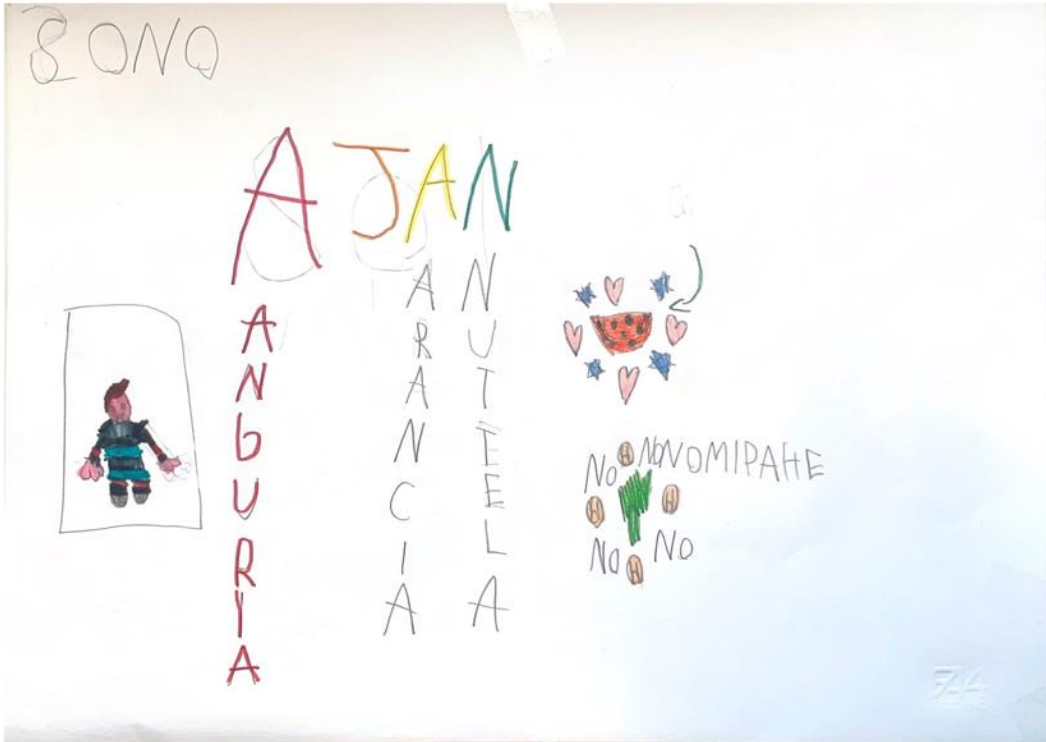 BONO
AJAN
ANGURIA
ARANCIA
NUTELA
NO NO NOMIPAHE
NO NO